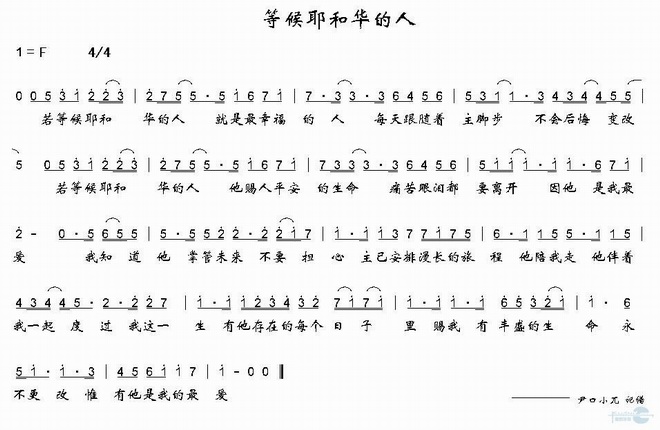 等候耶和华的人
1=F 4/4
0 0 5 3 i 2 2 3 | 2 7 5 5 · 5 i 6 7 i | 7 · 3 3 · 3 6 4 5 6 | 5 3 i i · 3 4 3 4 4 5 5
若等候耶和 华的人 就是最幸福 的人 每天跟随着 主脚步 不会后悔 变改
5 0 5 3 i 2 2 3 | 2 7 5 5 · 5 i 6 7 i | 7 · 3 3 3 · 3 6 4 5 6 | 5 i i · i · i 6 7 i
若等候耶和 华的人 他赐人平安 的生命 痛苦眼泪都 要离开 因他 是我最
2 - 0 · 5 6 5 5 | 5 · 5 5 2 2 · 2 2 i 7 | i · i i 3 7 7 i 7 5 | 6 · i i 5 5 · i i 5
爱 我知道他 掌管未来 不要 担心 主已安排漫长的旅 程 他陪我走 他伴着
4 3 4 4 5 · 2 · 2 2 7 | i · i i 2 3 4 3 2 7 i 7 i | i · i i · 6 5 3 2 i | i · 6
我一起 度过 我这一 生 有他存在的每个 日子 里 赐我 有丰盛的生 命 永
5 i · i · 3 | 4 5 6 i i 7 | i - 0 0
不更 改 惟 有他是我的最 爱
尹口小兀 记谱